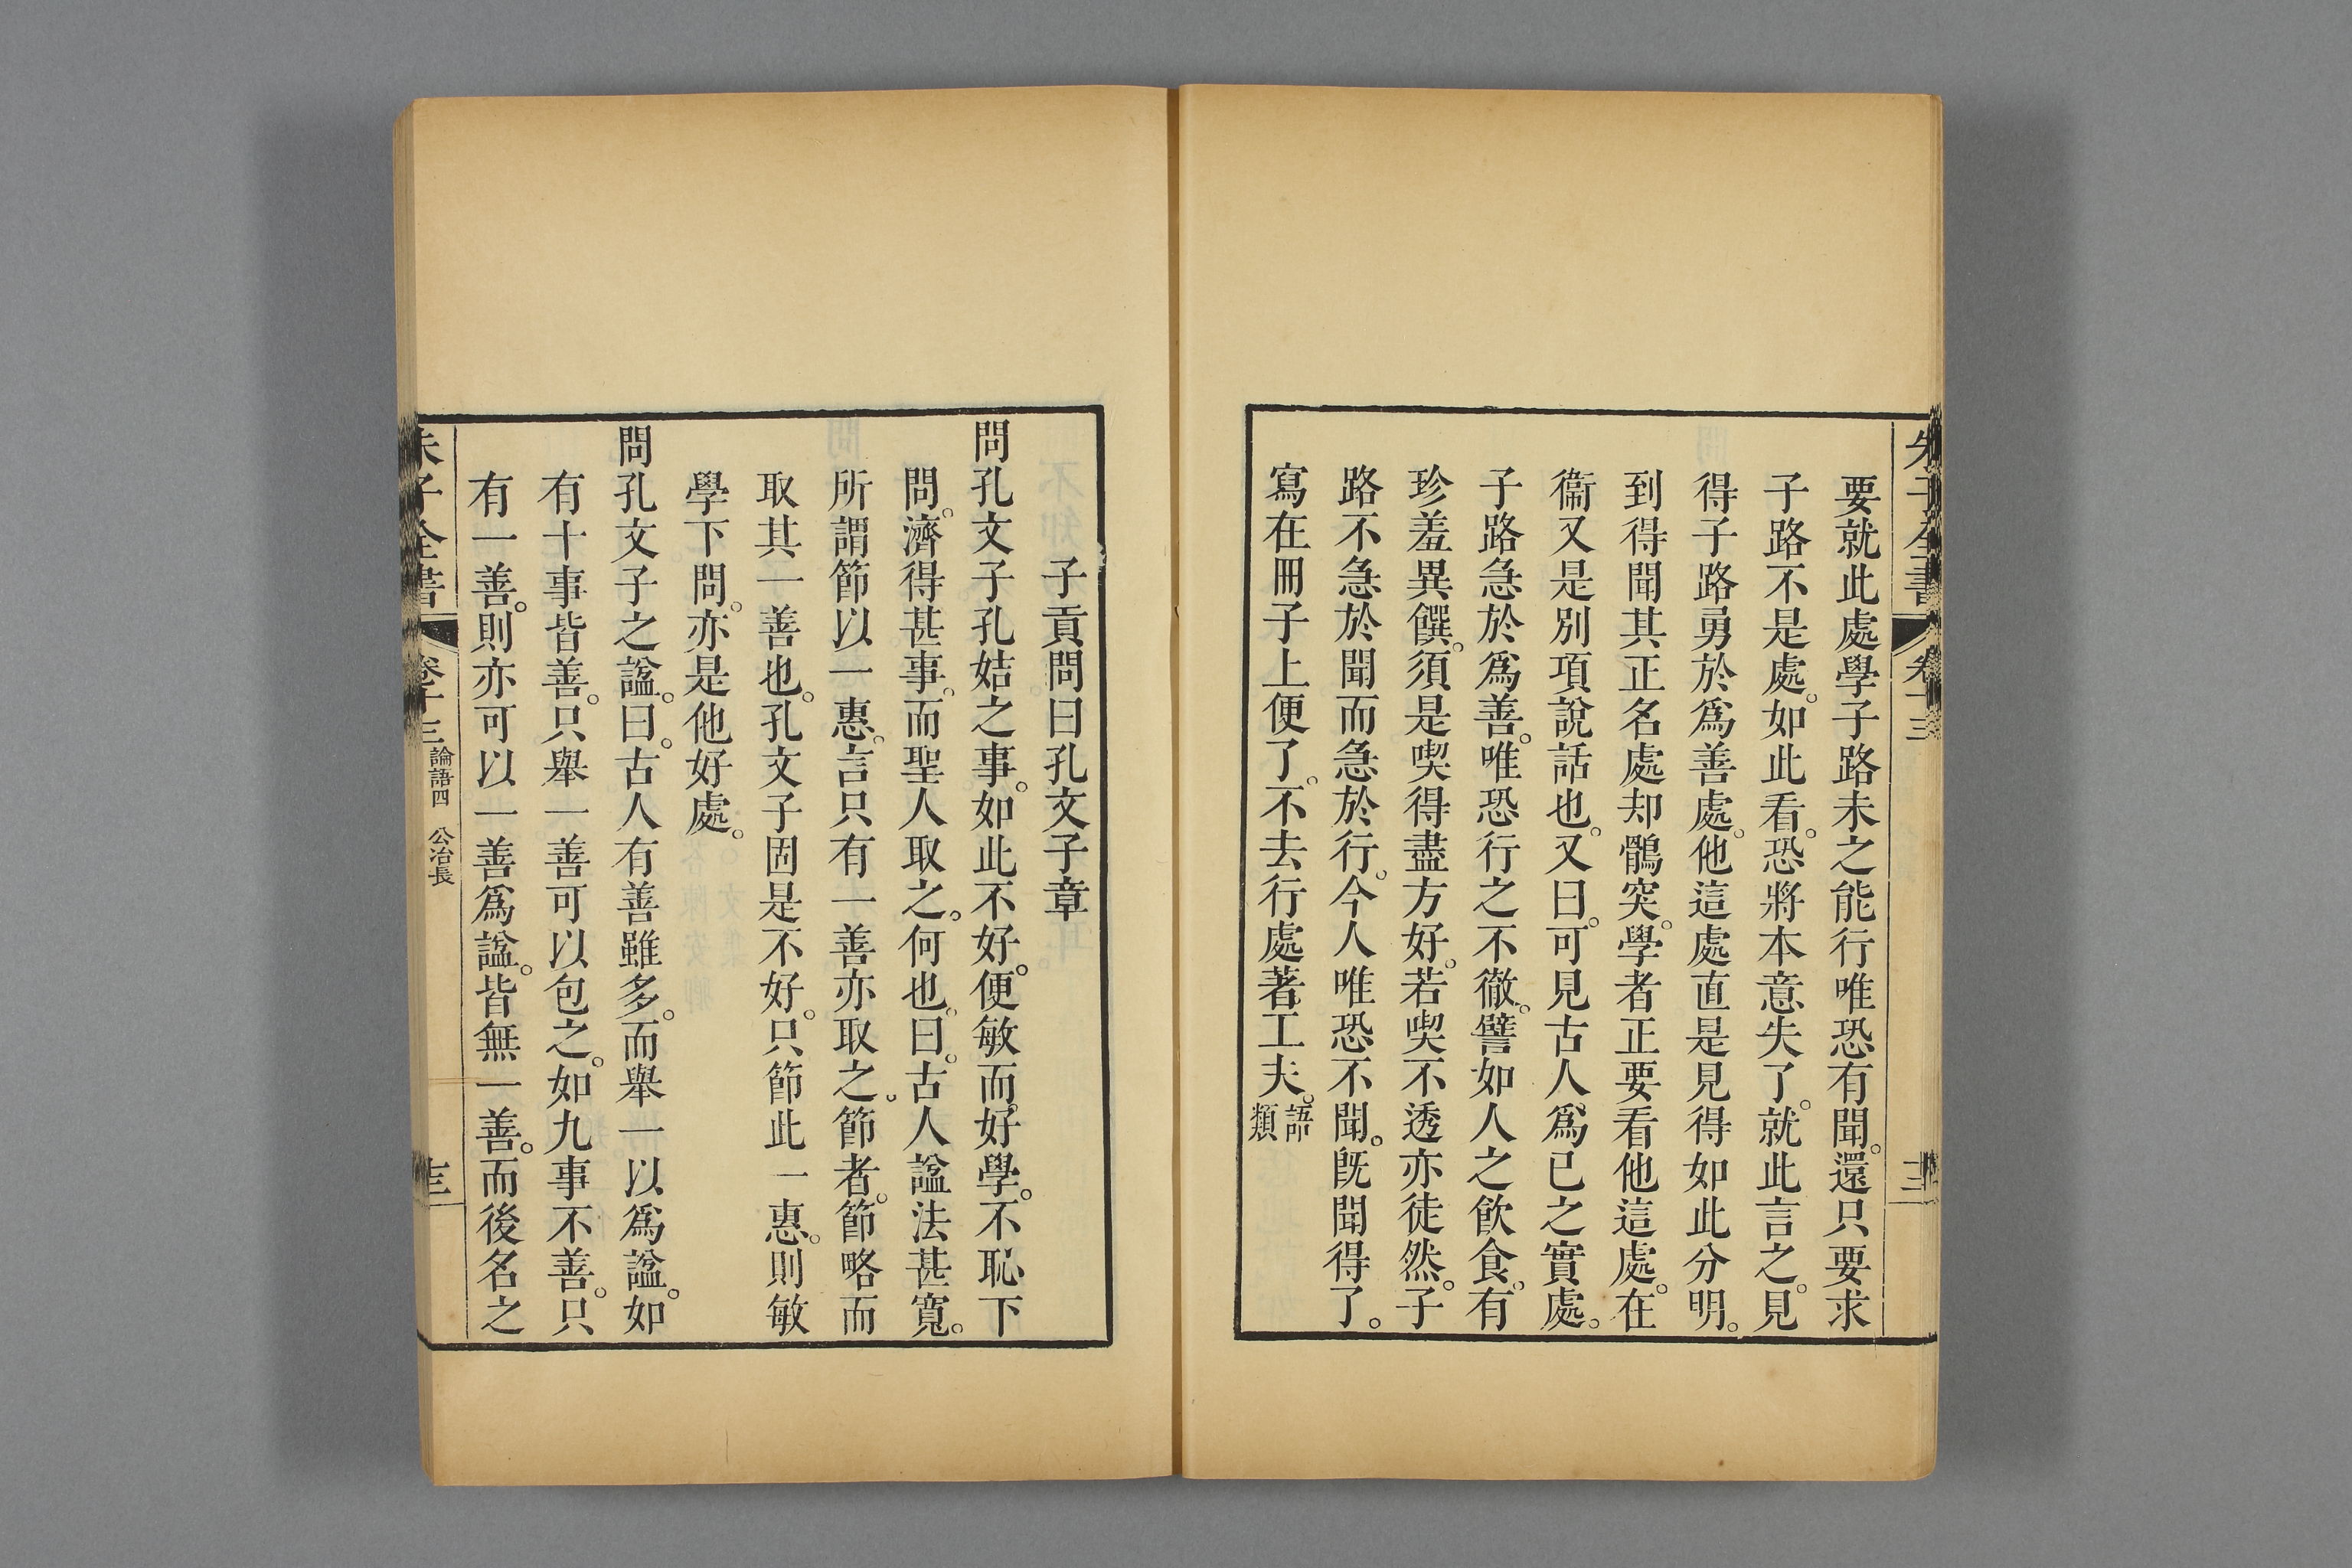 朱子全書 卷十三
要就此處學子路未之能行唯恐有聞。還只要求
子路不是處。如此看。恐將本意失了。就此言之。見
得子路勇於爲善處。他這處直是見得如此分明。
到得聞其正名處却鶻突。學者正要看他這處。在
衞又是別項說話也。又曰。可見古人爲已之實處。
子路急於爲善。唯恐行之不徹。譬如人之飲食。有
珍羞異饌。須是喫得盡方好。若喫不透亦徒然。子
路不急於聞而急於行。今人唯恐不聞。旣聞得了。
寫在冊子上便了。不去行處著工夫。語類
子貢問曰孔文子章
問孔文子孔姞之事。如此不好。便敏而好學。不恥下
問。濟得甚事。而聖人取之。何也。曰。古人諡法甚寬。
所謂節以一惠。言只有一善亦取之。節者。節略而
取其一善也。孔文子固是不好。只節此一惠。則敏
學下問。亦是他好處。
問孔文子之諡。曰。古人有善雖多。而舉一以爲諡。如
有十事皆善。只舉一善可以包之。如九事不善。只
有一善。則亦可以一善爲諡。皆無一善。而後名之
朱子全書 卷十三 論語四 公冶長